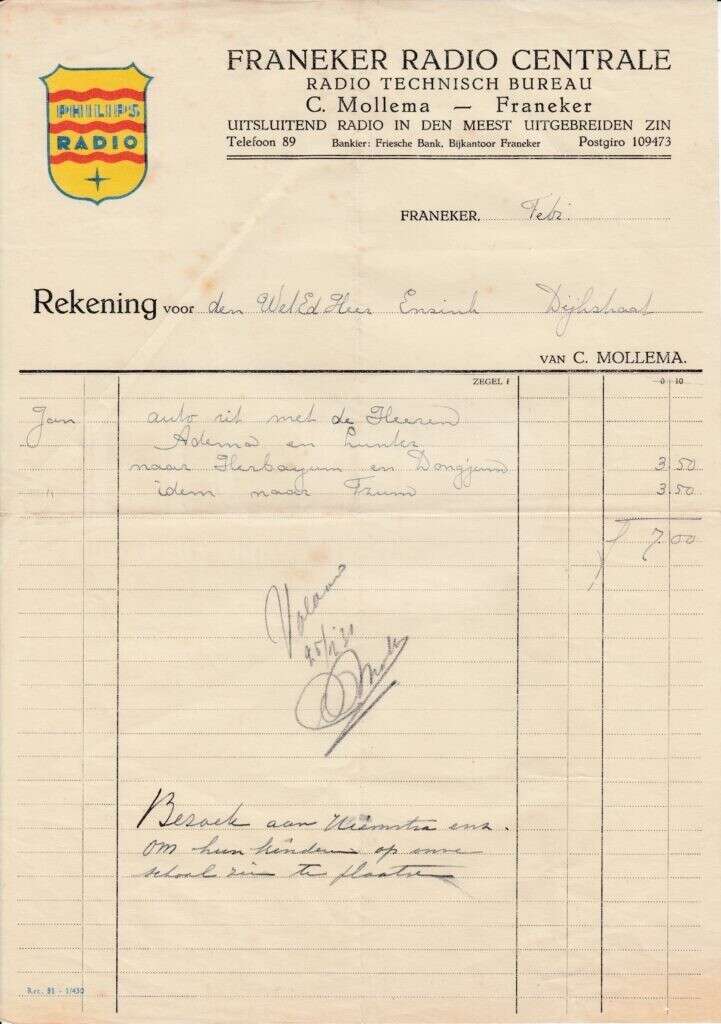 PHILIPS
RADIO
FRANEKER RADIO CENTRALE
RADIO TECHNISCH BUREAU
C. Mollema — Franeker
UITSLUITEND RADIO IN DEN MEEST UITGEBREIDEN ZIN
Telefoon 89 Bankier: Friesche Bank, Bijkantoor Franeker Postgiro 109473
FRANEKER, Febr.
Rekening voor den WelEd Heer Ensink Dijkstraat
VAN C. MOLLEMA.
ZEGEL f 0 10
Jan auto rit met de Heeren
Adema en
naar Herbayum en Dongjum 3.50
" idem naar Tzum 3.50
f 7.00
Voldaan
Bezoek aan enz.
om hun kinderen op onze
school te plaatsen
Rec. 81 - 1/430